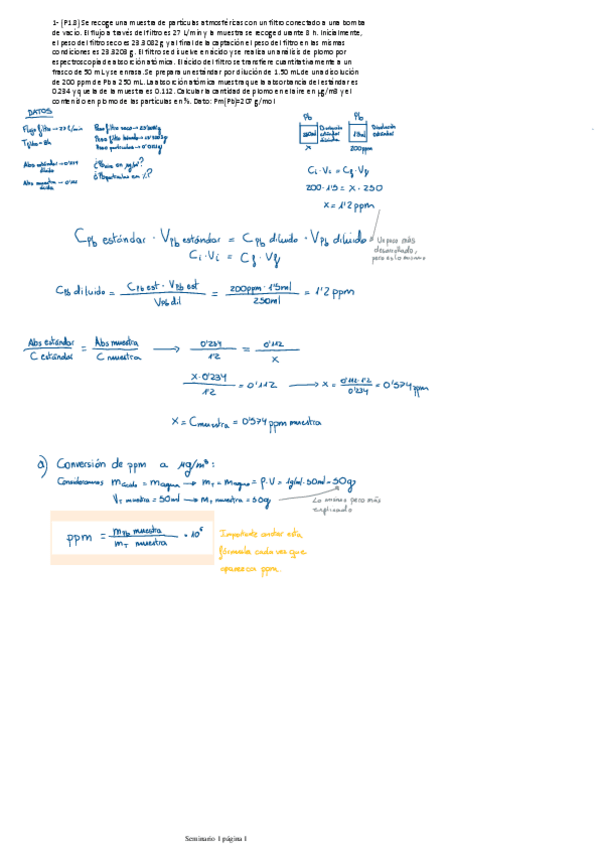 1- (P1.8) Se recoge una muestra de partículas atmosféricas con un filtro conectado a una bomba
de vacío. El flujo a través del filtro es 27 L/min y la muestra se recoge durante 8 h. Inicialmente,
el peso del filtro seco es 23.3082 g y al final de la captación el peso del filtro en las mismas
condiciones es 23.3203 g. El filtro se disuelve en ácido y se realiza un análisis de plomo por
espectroscopia de absorción atómica. El ácido del filtro se transfiere cuantitativamente a un
frasco de 50 mL y se enrasa. Se prepara un estándar por dilución de 1.50 mL de una disolución
de 200 ppm de Pb a 250 mL. La absorción atómica muestra que la absorbancia del estándar es
0.234 y que la de la muestra es 0.112. Calcular la cantidad de plomo en el aire en μg/m3 y el
contenido en plomo de las partículas en %. Dato: Pm(Pb)=207 g/mol
DATOS
Flujo filtro → 27 L/min
Peso filtro seco →
Peso filtro
Peso partículas →
Abs estándar →
diluido
Abs muestra →
diluida
¿ en μg/m³?
¿ partículas en %?
Pb Pb
250ml Disolución estándar diluida
1'5ml Disolución estándar
x 200ppm
Ci·Vi = Cf·Vf
200·1'5 = x·250
x = 1'2 ppm
C Pb estándar · V Pb estándar = C Pb diluido · V Pb diluido
Un paso más desarrollado, pero es lo mismo
Ci·Vi = Cf·Vf
C Pb diluido = C Pb est · V Pb est / V Pb dil = 200ppm·1'5ml / 250ml = 1'2 ppm
Abs estándar / C estándar = Abs muestra / C muestra → 0'234 / 1'2 = 0'112 / x
x·0'234 / 1'2 = 0'112 → x = 0'112·1'2 / 0'234 = 0'574 ppm
x = C muestra = 0'574 ppm muestra
a) Conversión de ppm a μg/m³:
Consideramos m ácido = m agua → mT = m agua = ρ·V = 1g/ml·50ml = 50g
VT muestra = 50ml → mT muestra = 50g
Lo mismo pero más explicado
ppm = m Pb muestra / mT muestra · 10⁶
Importante anotar esta
fórmula cada vez que
aparezcan ppm.
Seminario 1 página 1